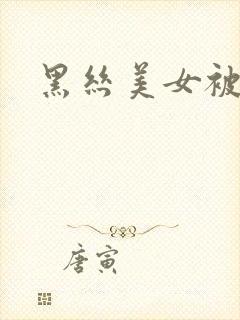 黑丝美女被
唐寅